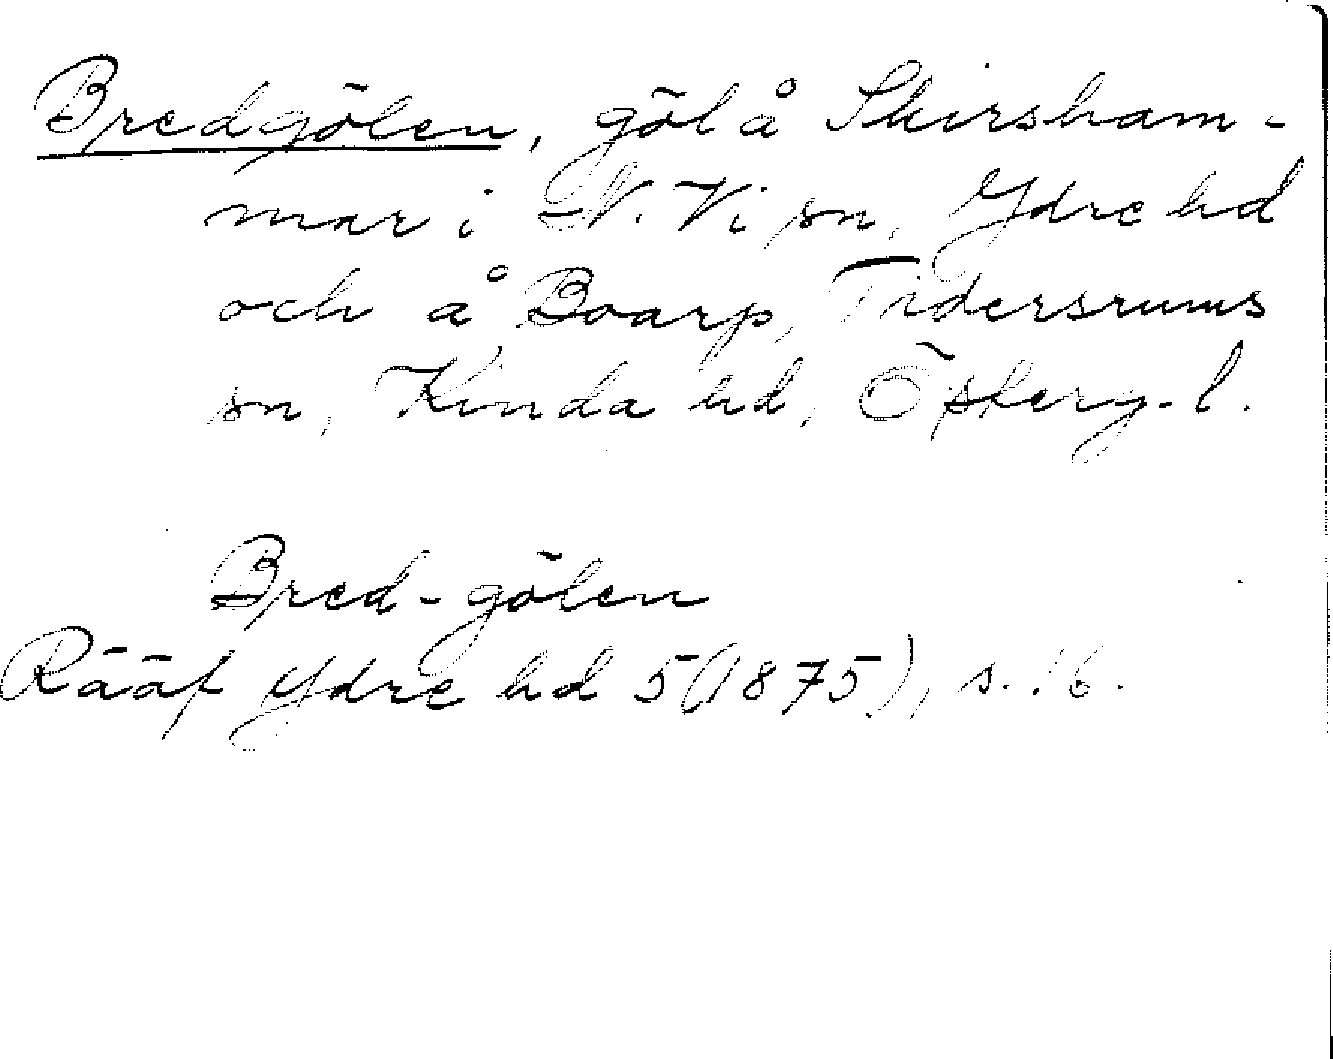 Bredgölen, göl å Skirsham-
mar i N. Vi sn, Ydre hd
och å Boarp, Tidersrums
sn, Kinda hd, Österg. l.
Bred-gölen
Rääf Ydre hd 5 (1875), s. 16.